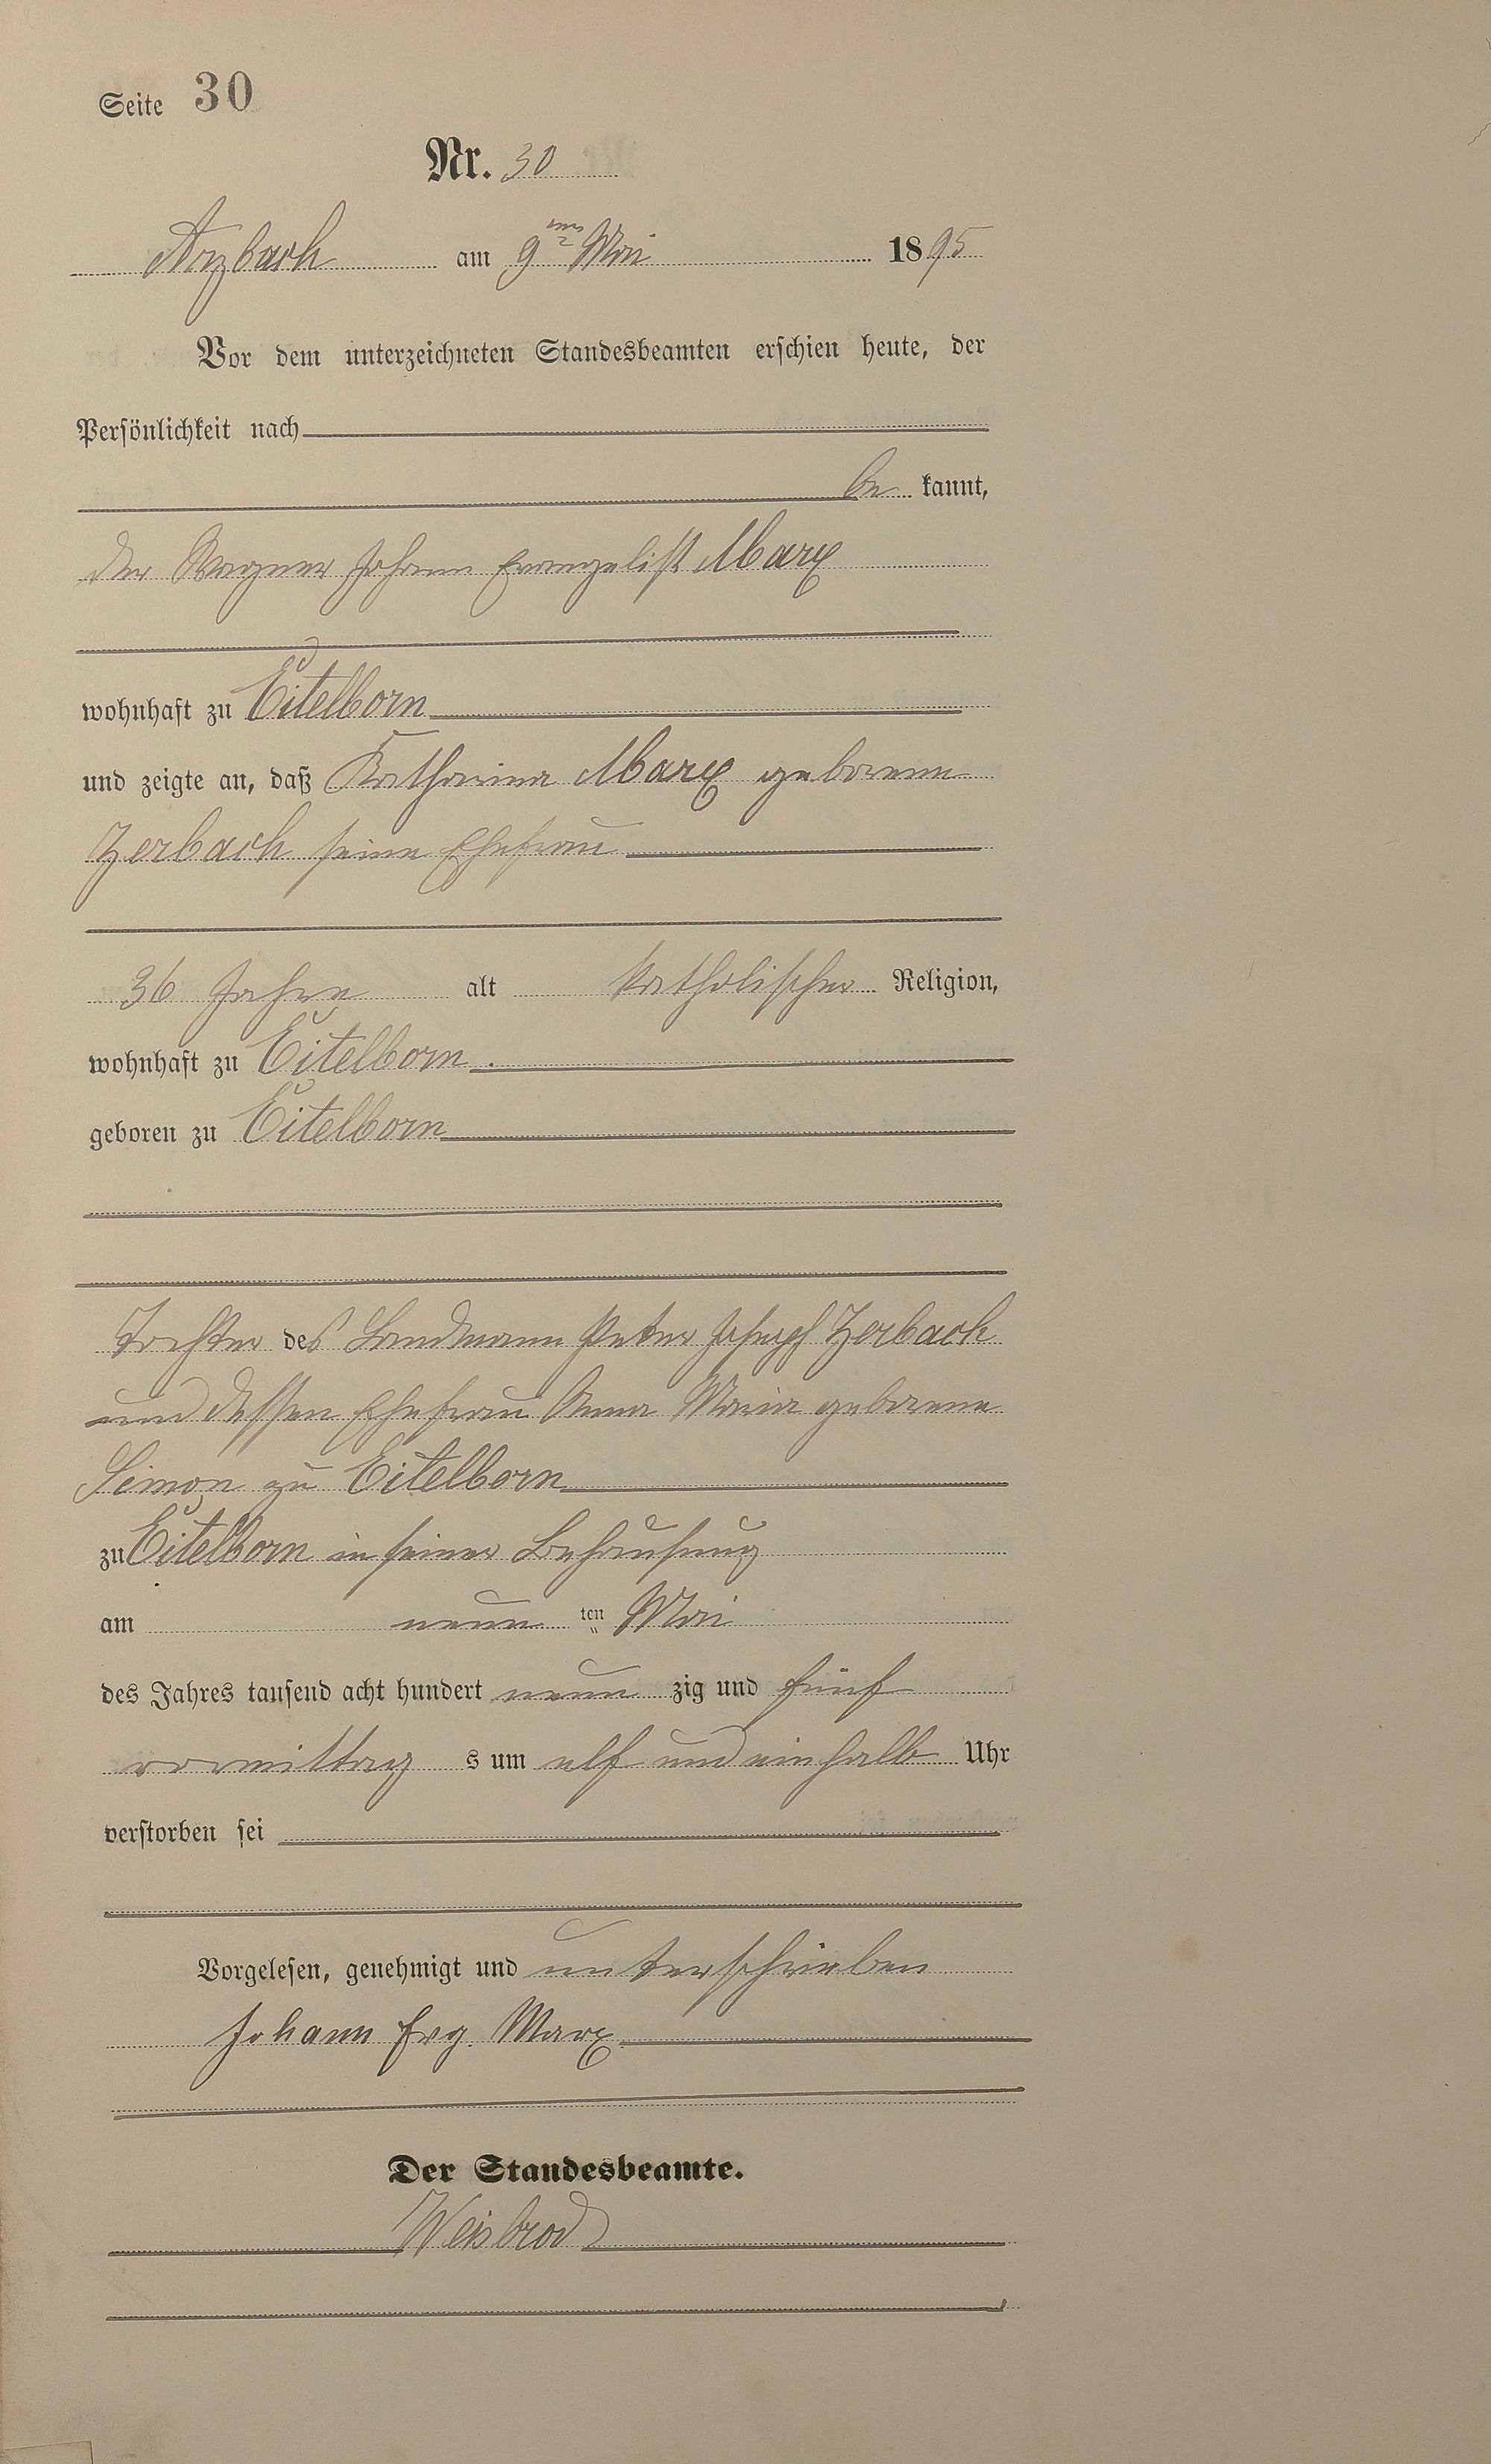 Seite 30
Nr. 30
Arzbach am 9ten Mai 1895
Vor dem unterzeichneten Standesbeamten erschien heute, der
Persönlichkeit nach
be kannt,
der Wagner Johann Evangelist Marx
wohnhaft zu Eitelborn
und zeigte an, daß Katharina Marx geborene
Zerbach seine Ehefrau
36 Jahre alt katholischer Religion,
wohnhaft zu Eitelborn.
geboren zu Eitelborn
Tochter des Landmann Peter Joseph Zerbach
und dessen Ehefrau Anna Maria geborene
Simon zu Eitelborn
zu Eitelborn in seiner Behausung
am neun ten Mai
des Jahres tausend acht hundert neun zig und fünf
vormittag s um elf und einhalb Uhr
verstorben sei
Vorgelesen, genehmigt und unterschrieben
Johann Evg. Marx
Der Standesbeamte.
Weisbrod